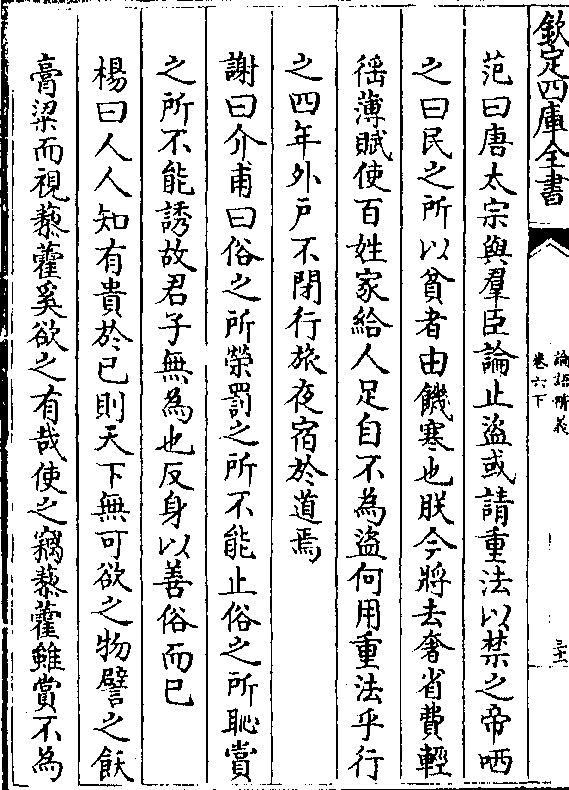 欽定四庫全書
論語精義
卷六下
三十一
范曰唐太宗與羣臣論止盜或請重法以禁之帝哂
之曰民之所以貧者由饑寒也朕今將去奢省費輕
徭薄賦使百姓家給人足自不為盜何用重法乎行
之四年外戶不閉行旅夜宿於道焉
謝曰介甫曰俗之所榮罰之所不能止俗之所恥賞
之所不能誘故君子無為也反身以善俗而已
楊曰人人知有貴於已則天下無可欲之物譬之飫
膏粱而視藜藿奚欲之有哉使之竊藜藿雖賞不為